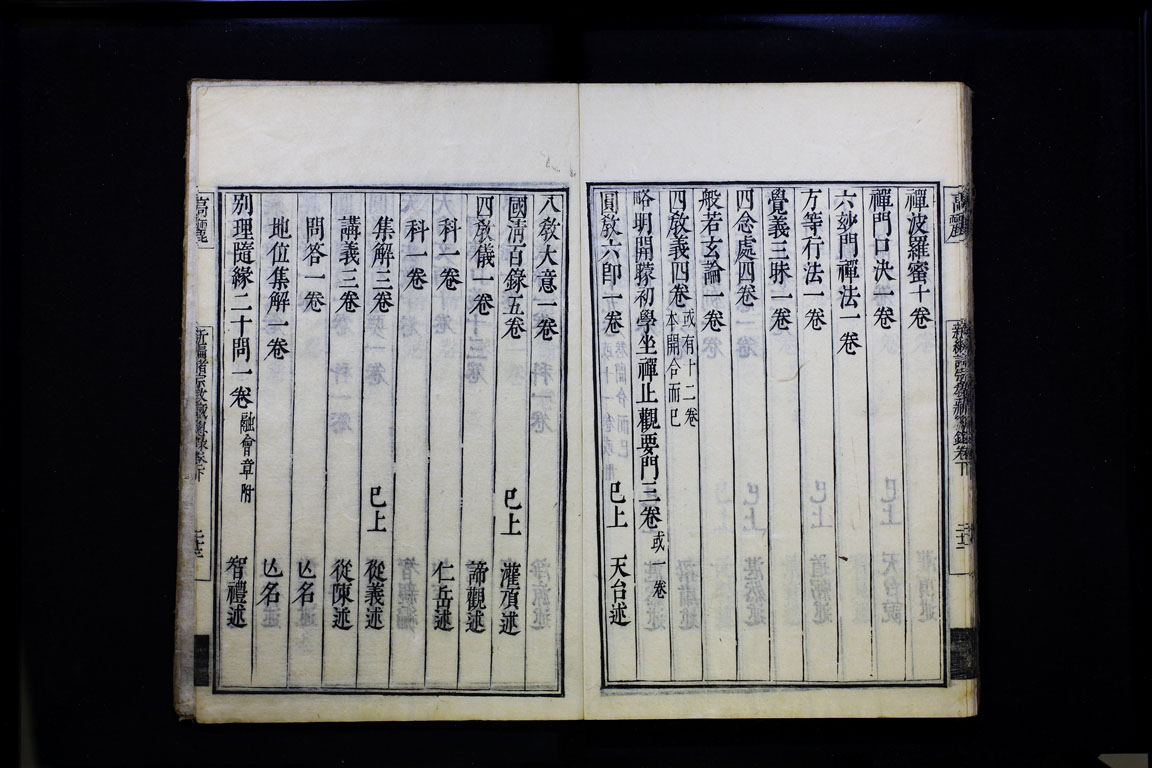 禪波羅蜜十卷
禪門口決一卷
六玅門禪法一卷
方等行法一卷
覺義三昧一卷
四念處四卷
般若玄論一卷
四敎義四卷 或有十二卷
本開合而已
略明開矇初學坐禪止觀要門三卷 或一卷
圓敎六卽一卷 已上 天台述
八敎大意一卷
國淸百錄五卷 已上 灌頂述
四敎儀一卷 諦觀述
科一卷 仁岳述
科一卷
集解三卷 已上 從義述
講義三卷 從陳述
問答一卷 亾名
地位集解一卷 亾名
別理隨緣二十問一卷 融會章附 智禮述
高麗
新編諸宗敎藏總錄卷下